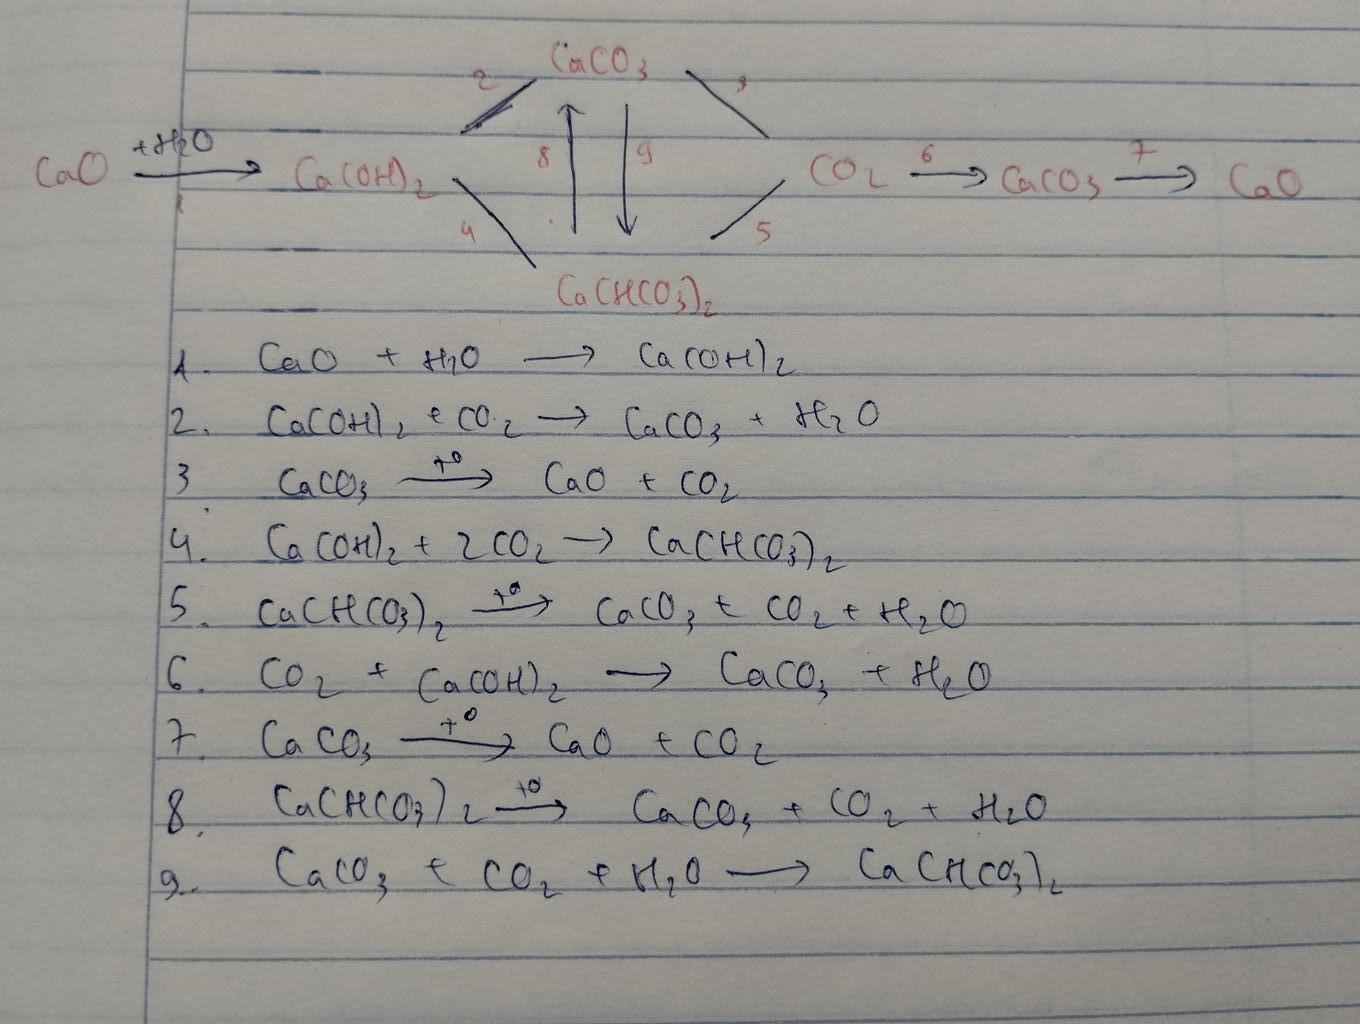 CaCO₃
2 3
CaO +H₂O → Ca(OH)₂ 8 9 CO₂ 6 → CaCO₃ 7 → CaO
1
4 5
Ca(HCO₃)₂
1. CaO + H₂O → Ca(OH)₂
2. Ca(OH)₂ + CO₂ → CaCO₃ + H₂O
3 CaCO₃ t° → CaO + CO₂
4. Ca(OH)₂ + 2CO₂ → Ca(HCO₃)₂
5. Ca(HCO₃)₂ t° → CaCO₃ + CO₂ + H₂O
6. CO₂ + Ca(OH)₂ → CaCO₃ + H₂O
7. CaCO₃ t° → CaO + CO₂
8. Ca(HCO₃)₂ t° → CaCO₃ + CO₂ + H₂O
9. CaCO₃ + CO₂ + H₂O → Ca(HCO₃)₂